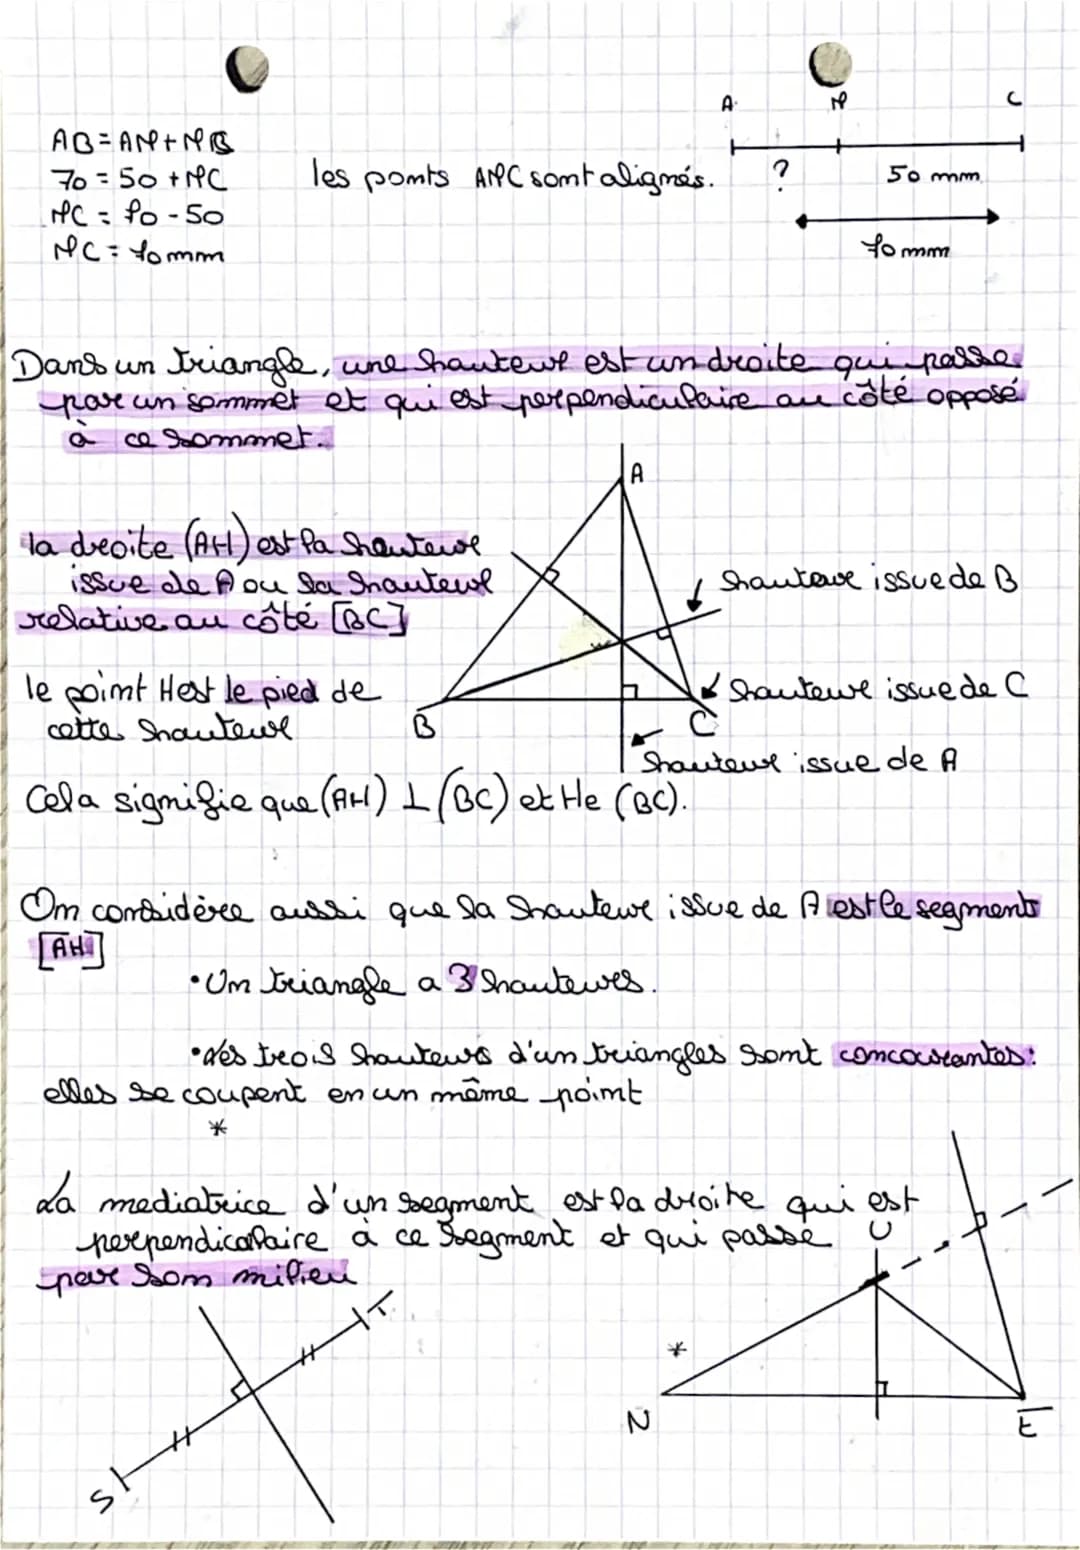 AB = AM + MB
70 = 50 + MC
MC = 70 - 50
MC = 70 mm
les points AMC sont alignés.
A M C
? 50 mm
70 mm
Dans un triangle, une hauteur est un droite qui passe
par un sommet et qui est perpendiculaire au côté opposé
à ce sommet.
la droite (AH) est la hauteur
issue de A ou la hauteur
relative au côté [BC]
le point H est le pied de
cette hauteur
A
B
C
hauteur issue de B
hauteur issue de C
hauteur issue de A
Cela signifie que (AH) ⊥ (BC) et H e (BC).
On considère aussi que la hauteur issue de A est le segments
[AH]
• Un triangle a 3 hauteurs.
• Les trois hauteurs d'un triangles sont concourantes :
elles se coupent en un même point
*
La mediatrice d'un segment est la droite qui est
perpendicalaire à ce segment et qui passe
par son milieu
S
T
*
U
N
E